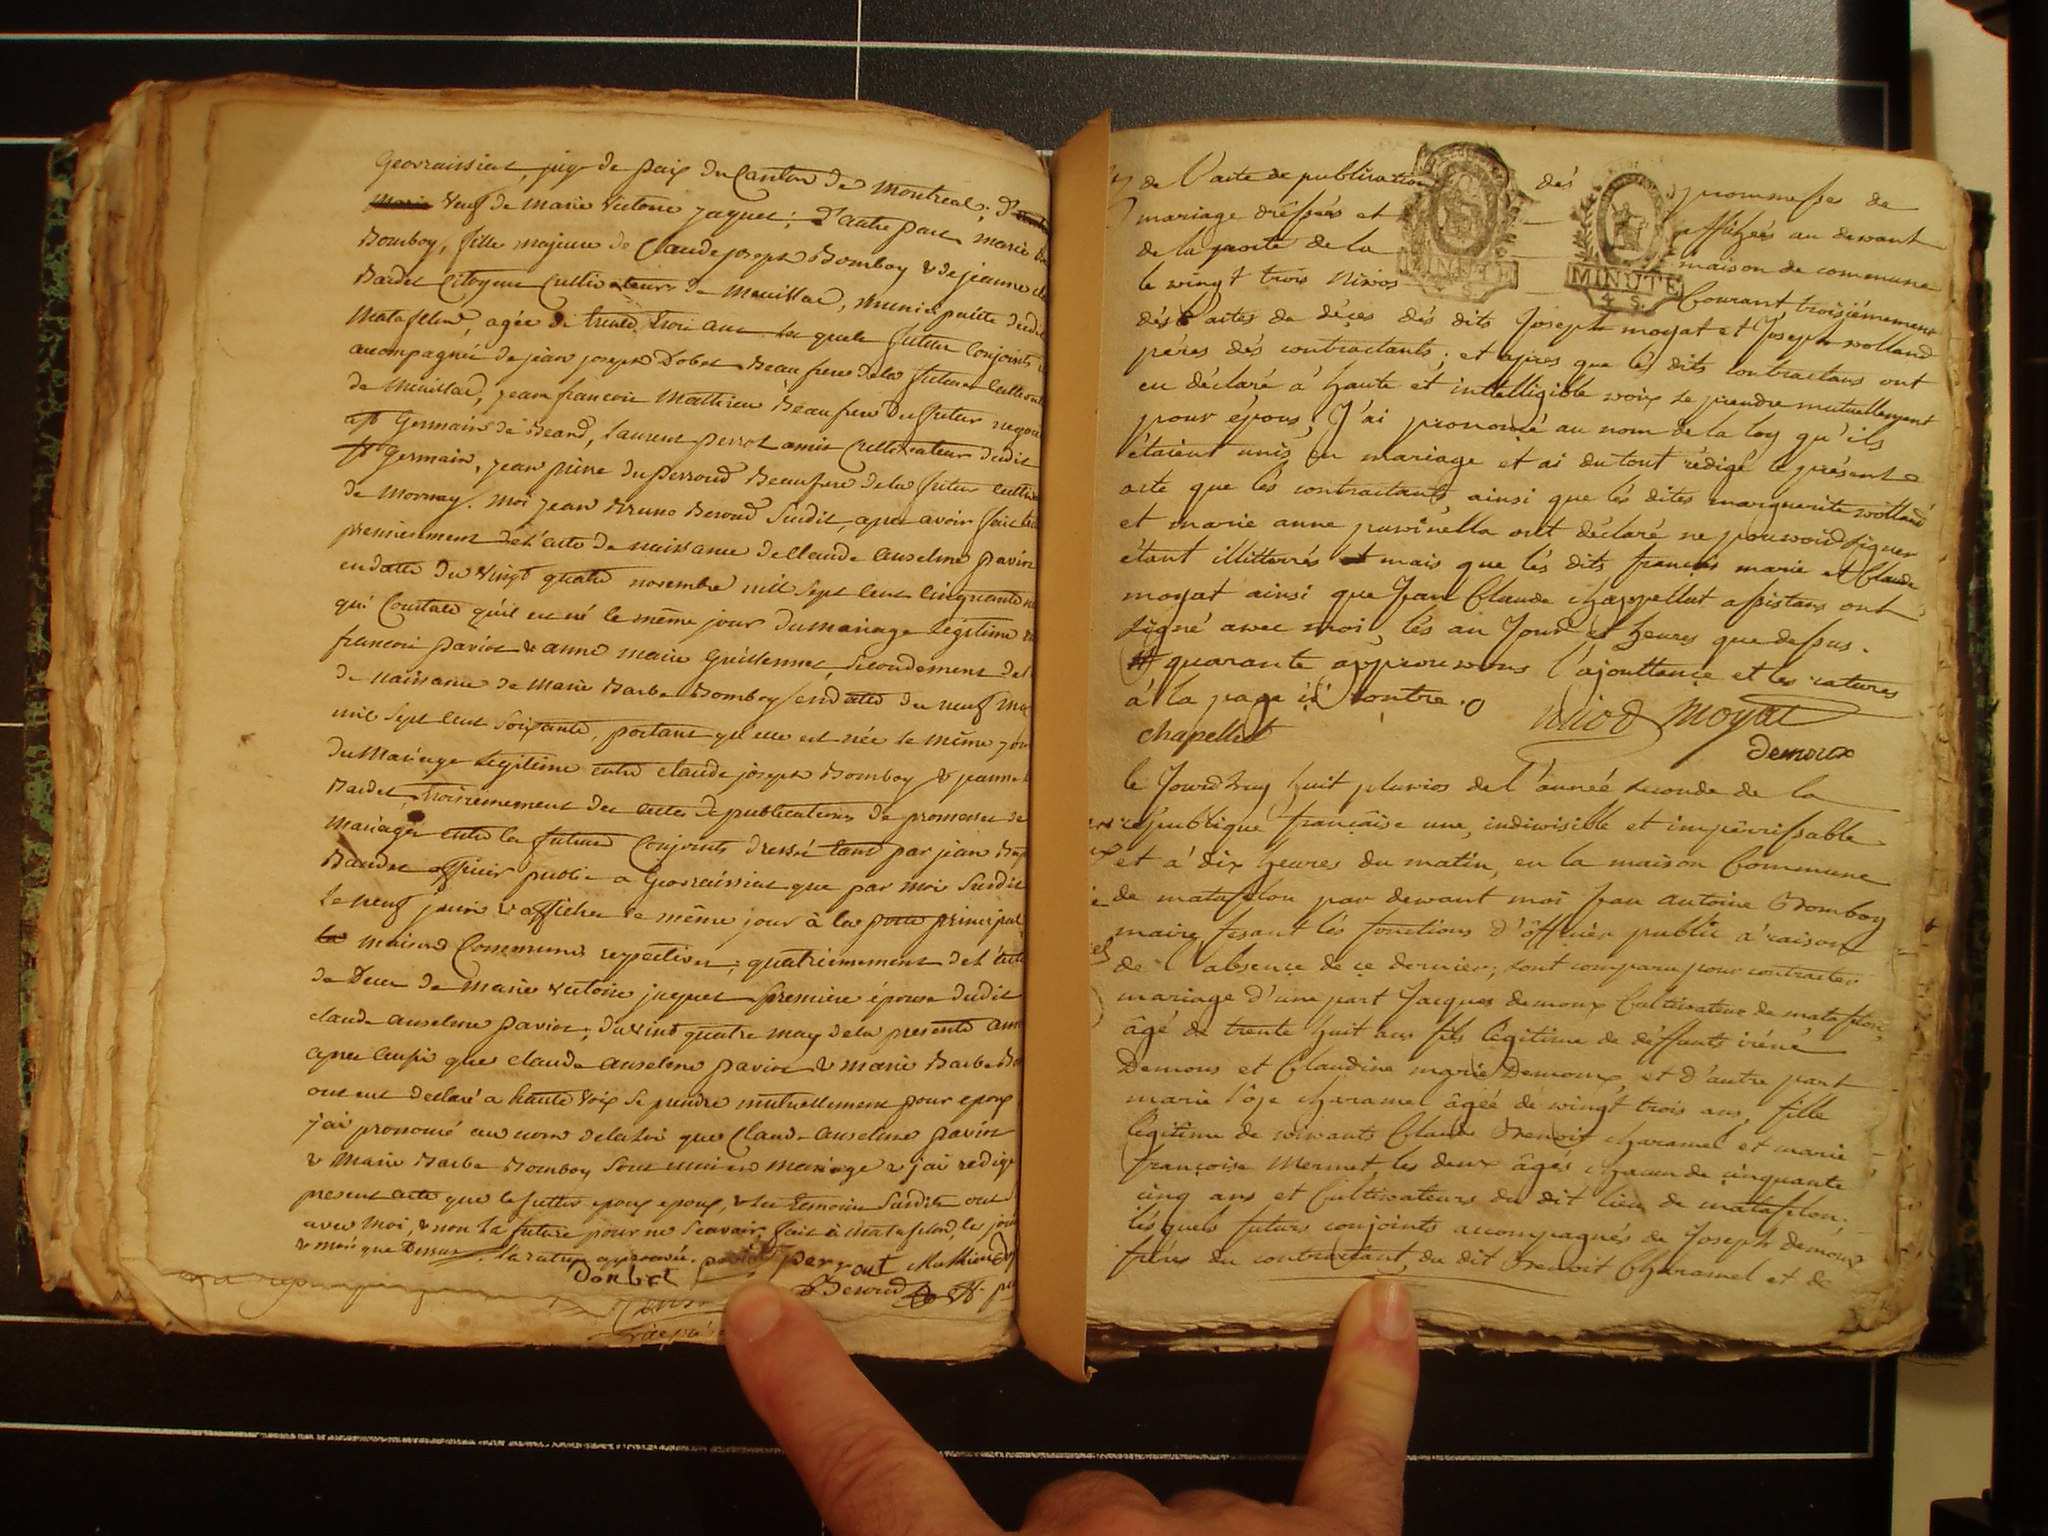 Georraissiat, juge de paix du Canton de Montreal; d'
veuf de Marie Victoire jaquet; d'autre part marie
Bomboy, fille majeure de Claude joseph Bomboy & de jeanne
Bardet Citoyens Cultivateurs de Meuillac, municipalité dudit
Matafelon, agée de trente trois ans les quels futurs Conjoints
acompagnés de jean joseph Dobet Beau frere de la future
de Meuillac, jean francois Mathieu Beaufrere du futur
Germain de Beard, Laurent perrot amis Cultivateur dudit
Germain, jean pierre du perroud Beaufrere de la future
de Mornay. Moi jean Bruno Beroud Susdit, apres avoir fait
premierement de l'acte de naissance de Claude anselme paviot
endatte du vingt quatre novembre mil sept cent cinquante
qui Constate qu'il est né le même jour du mariage légitime
francois paviot & anne marie Secondement de
de naissance de Marie Barbe Bomboy endatte du neuf
mil sept cent soixante, portant qu'elle est née le même
du Mariage legitime entre claude joseph Bomboy & jeanne
Bardet, troisiemement des actes de publications de promesses de
mariage entre les futurs Conjoints dressé tant par jean
Baudet officier public a Georraissiat que par moi Susdit
le neuf juin & affichés le même jour à la porte
maisons Communes respectives; quatriemement de l'acte
de Deces de marie victoire jaquet premiere épouse dudit
claude anselme paviot, du vint quatre may de la presente
apres aussi que claude anselme paviot & marie Barbe
ont eut declaré a haute voix se prendre mutuellement pour epoux
j'ai prononcé au nom de la loi que Claude anselme paviot
& Marie Barbe Bomboy sont unis en mariage & j'ai redigé
present acte que le futur epoux & les temoins Susdits ont
avec Moi, & non la future pour ne Scavoir, fait à Matafelond, le jour
& mois que Dessus. la rature approuvée. perrot Mathieu
Beroud
de l'acte de publication des promesses de
mariage dréssées et affichées au devant
de la porte de la maison de commune
le vingt trois nivos Courant troisiémement
dés actes de déçes dés dits Joseph moyat et Joseph volland
péres dés contractants; et apres que lés dits contractans ont
eu déclaré á haute et intelligible voix se prendre mutuellement
pour épous, J'ai prononcé au nom de la loy qu'ils
étaient unis en mariage et ai du tout rédigé le présent
acte que lés contractants ainsi que lés dites marguerite volland
et marie anne ont déclaré ne pouvoir signer
étant illitterés mais que lés dits françois marie et Claude
moyat ainsi que Jean Claude chappellut assistans ont
signé avec moi, lés an Jour et heures que dessus.
quarante approuvons l'ajouttance et les ratures
á la page ci contre.
Niod Moyat
chapellut
demoux
le Jourdhuy huit pluvios de l'année seconde de la
république française une, indivisible et impérrissable
et á dix heures du matin, en la maison Commune
de matafelon par devant moi Jean antoine Bomboy
maire, fesant lés fonctions d'officier public á raison
de l'absençe de çe dernier; sont comparu pour contracter
mariage d'une part Jacques demoux Cultivateur de matafelon,
âgé de trente huit ans fils légitime de déffunts iréné
Demoux et Claudine marie Demoux, et d'autre part
marie charamel âgée de vingt trois ans, fille
légitime de vivants Claude Benoit charamel et marie
françoise Mermet, les deux âgés chacun de cinquante
cinq ans et Cultivateurs du dit lieu de matafelon.
lésquels futurs conjoints accompagnés de Joseph demoux
frére du contractant, du dit Benoit Charamel et de